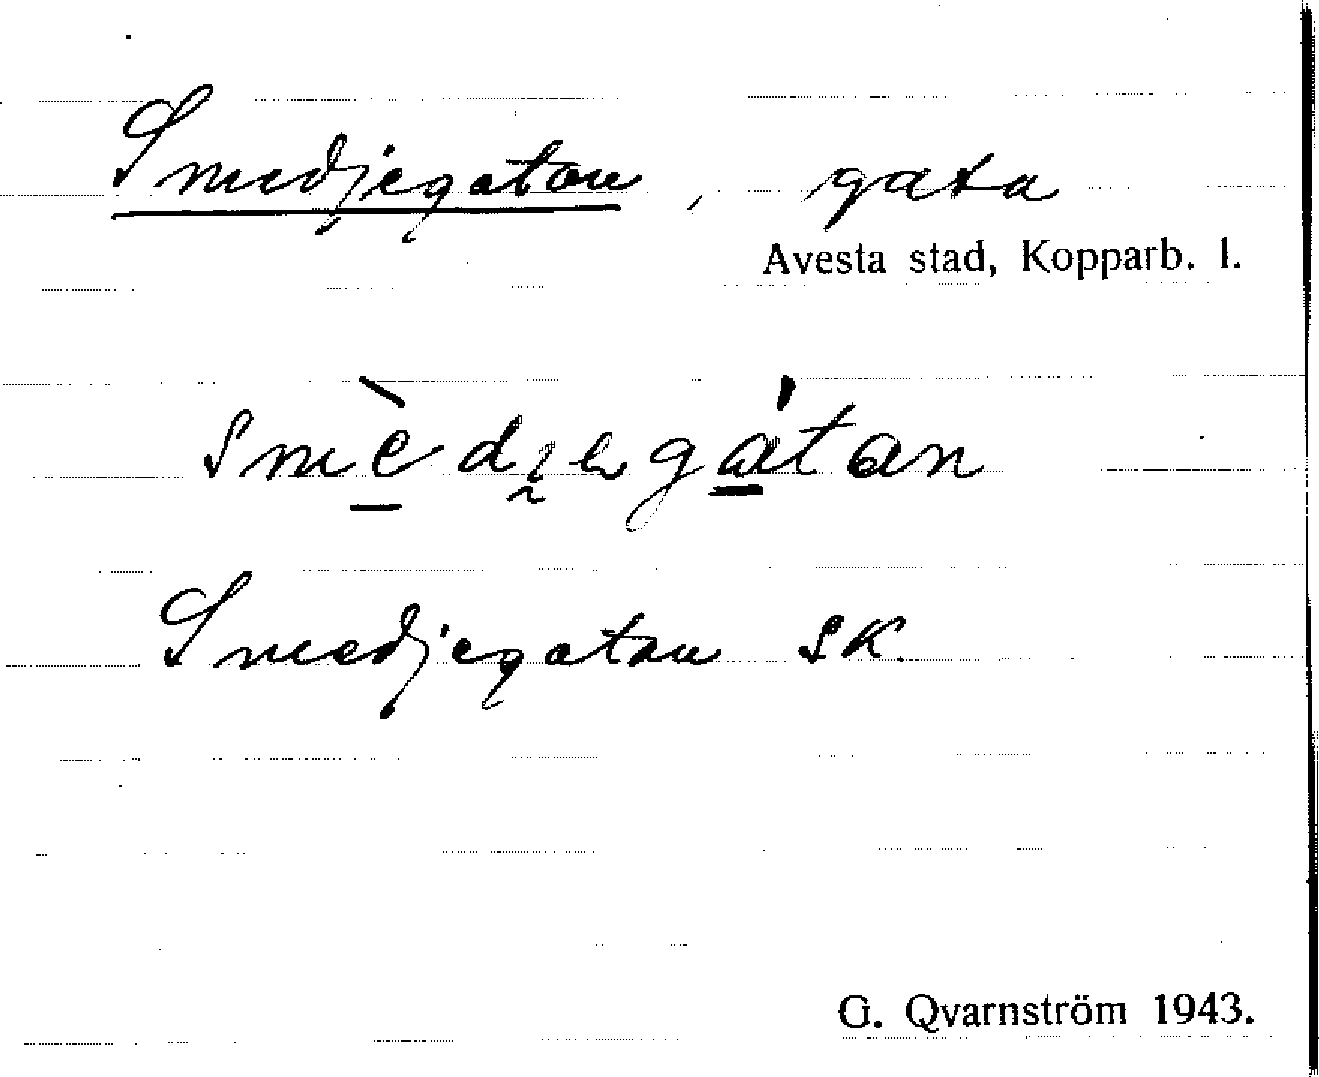 Smedjegatan, gata
Avesta stad, Kopparb. l.
Smedjegatan SK.
G. Qvarnström 1943.